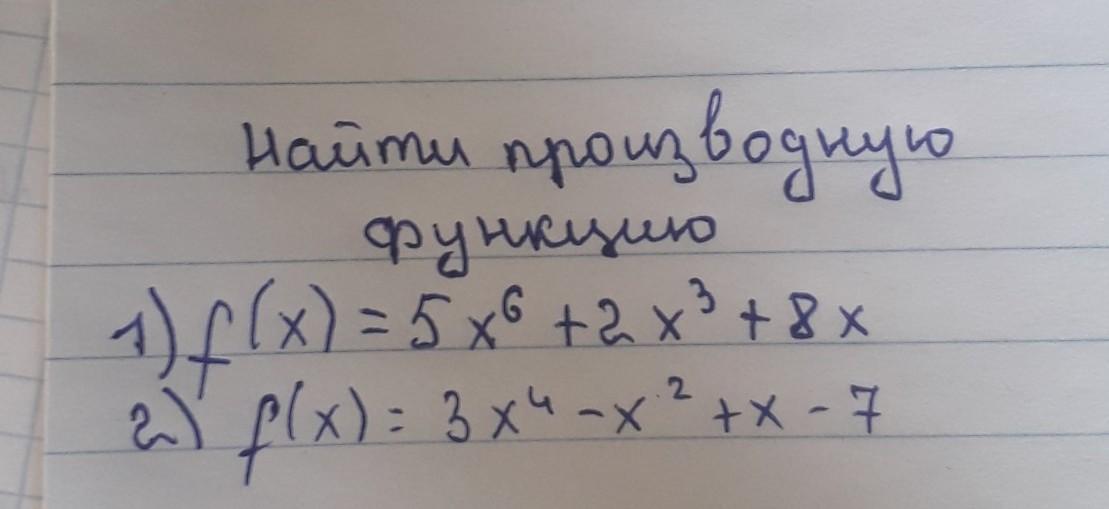 Найти производную
функцию
1) f(x) = 5x⁶ + 2x³ + 8x
2) f(x) = 3x⁴ - x² + x - 7